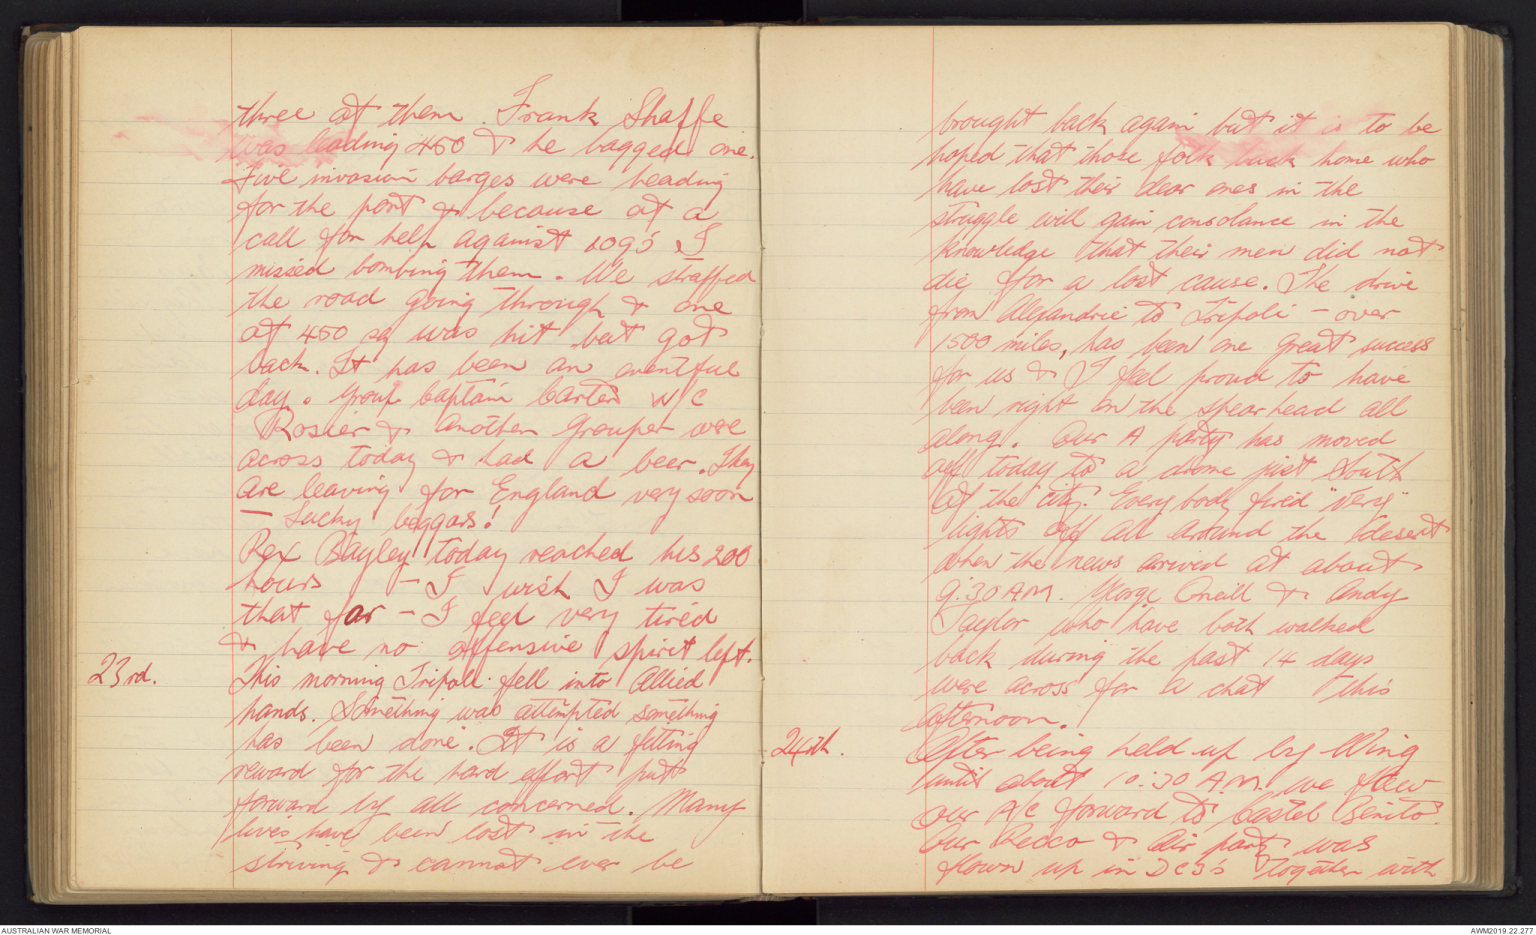 three of them. Frank Shaffe
was leading 450 & he bagged one.
Five invasion barges were heading
for the port & because of a
call for help against 109's I
missed bombing them. We straffed
the road going through & one
of 450 sq was hit but got
back. It has been an eventful
day. Group Captain Carter W/C
Rosier & another Grouper were
across today & had a beer. They
are leaving for England very soon
- Lucky beggars!
Rex Bayley today reached his 200
hours - I wish I was
that far - I feel very tired
& have no offensive spirit left.
23rd. This morning Tripoli fell into Allied
hands. Something was attempted something
has been done. It is a fitting
reward for the hard effort put
forward by all concerned. Many
lives have been lost in the
striving & cannot ever be
brought back again but it is to be
hoped that those folk back home who
have lost their dear ones in the
struggle will gain consolance in the
knowledge that their men did not
die for a lost cause. The drive
from Alexandrie to Tripoli - over
1500 miles, has been one great success
for us & I feel proud to have
been right on the spearhead all
along. Our A party has moved
off today to a drome just South
of the city. Everybody fired "Very"
lights off all around the desert
when the news arrived at about
9.30 AM. George Oneill & Andy
Taylor who have both walked
back during the past 14 days
were across for a chat this
afternoon.
24th. After being held up by Wing
until about 10:30 A.M. we flew
our A/C forward to Castel Benito.
Our Recco & Air party was
flown up in DC3's together with
AUSTRALIAN WAR MEMORIAL
AWM2019.22.277